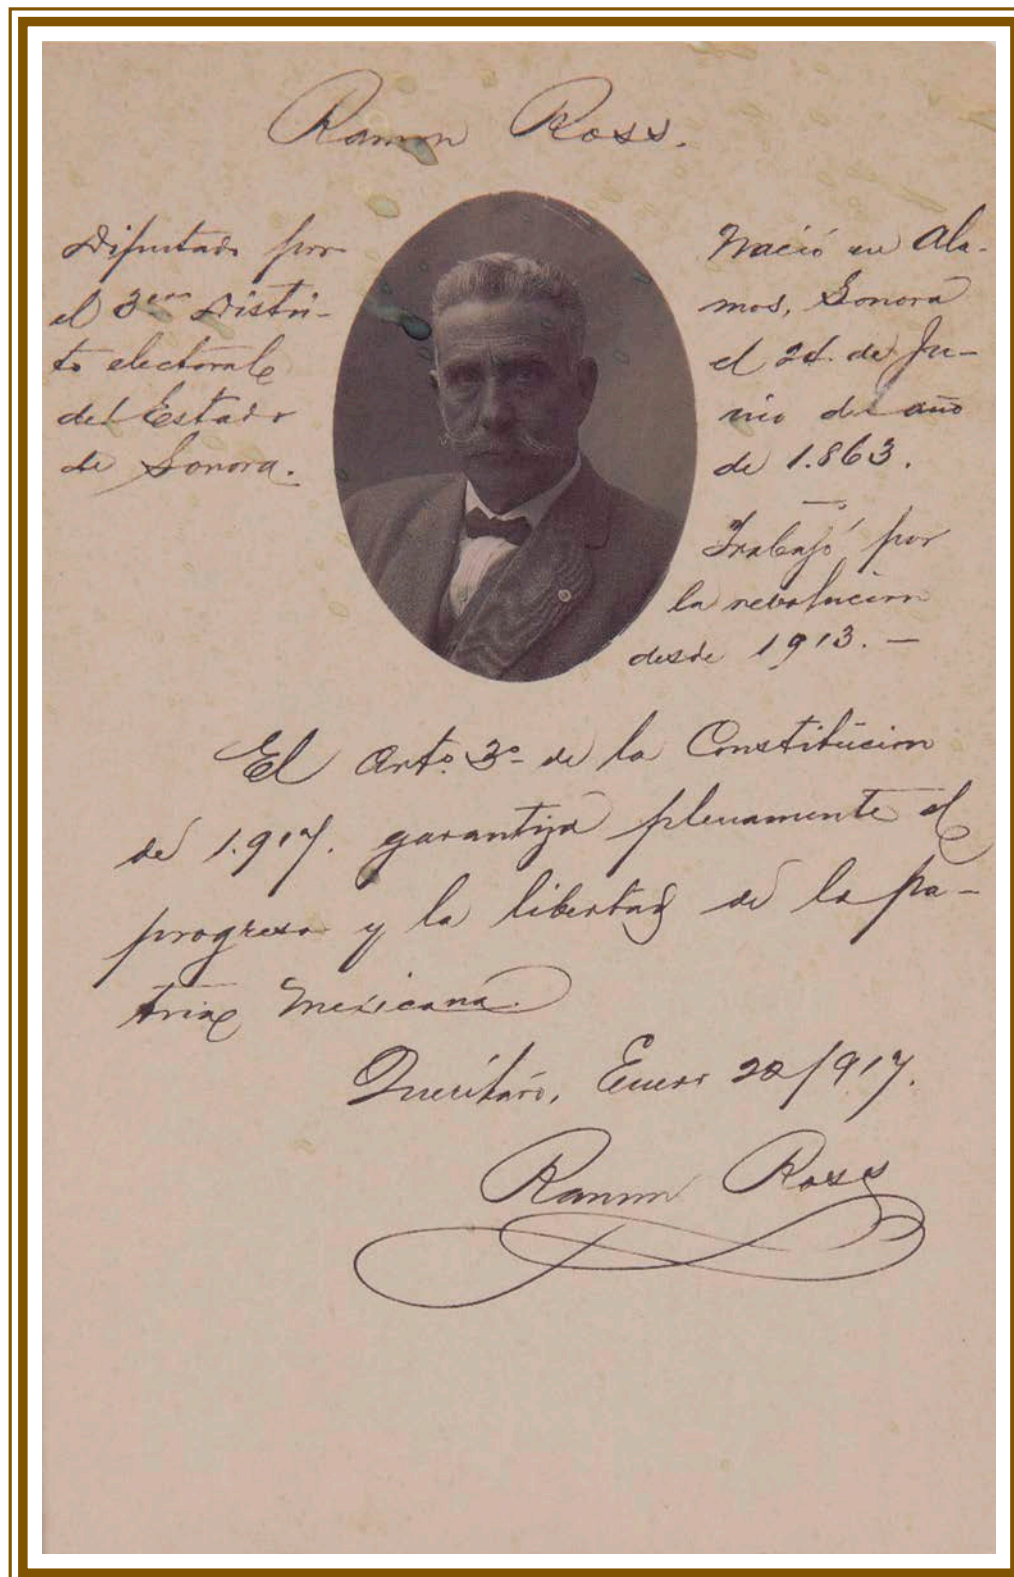 Ramon Ross.
Diputado por
el 3er Distri-
to electoral
del Estado
de Sonora.
Nació en Ala-
mos, Sonora
el 24 de Ju-
nio del año
de 1.863.
Trabajó por
la revolucion
desde 1913. —
El Arto. 3o- de la Constitución
de 1.917. garantiza plenamente el
progreso y la libertad de la pa-
tria Mexicana.
Querétaro, Enero /917.
Ramon Ross